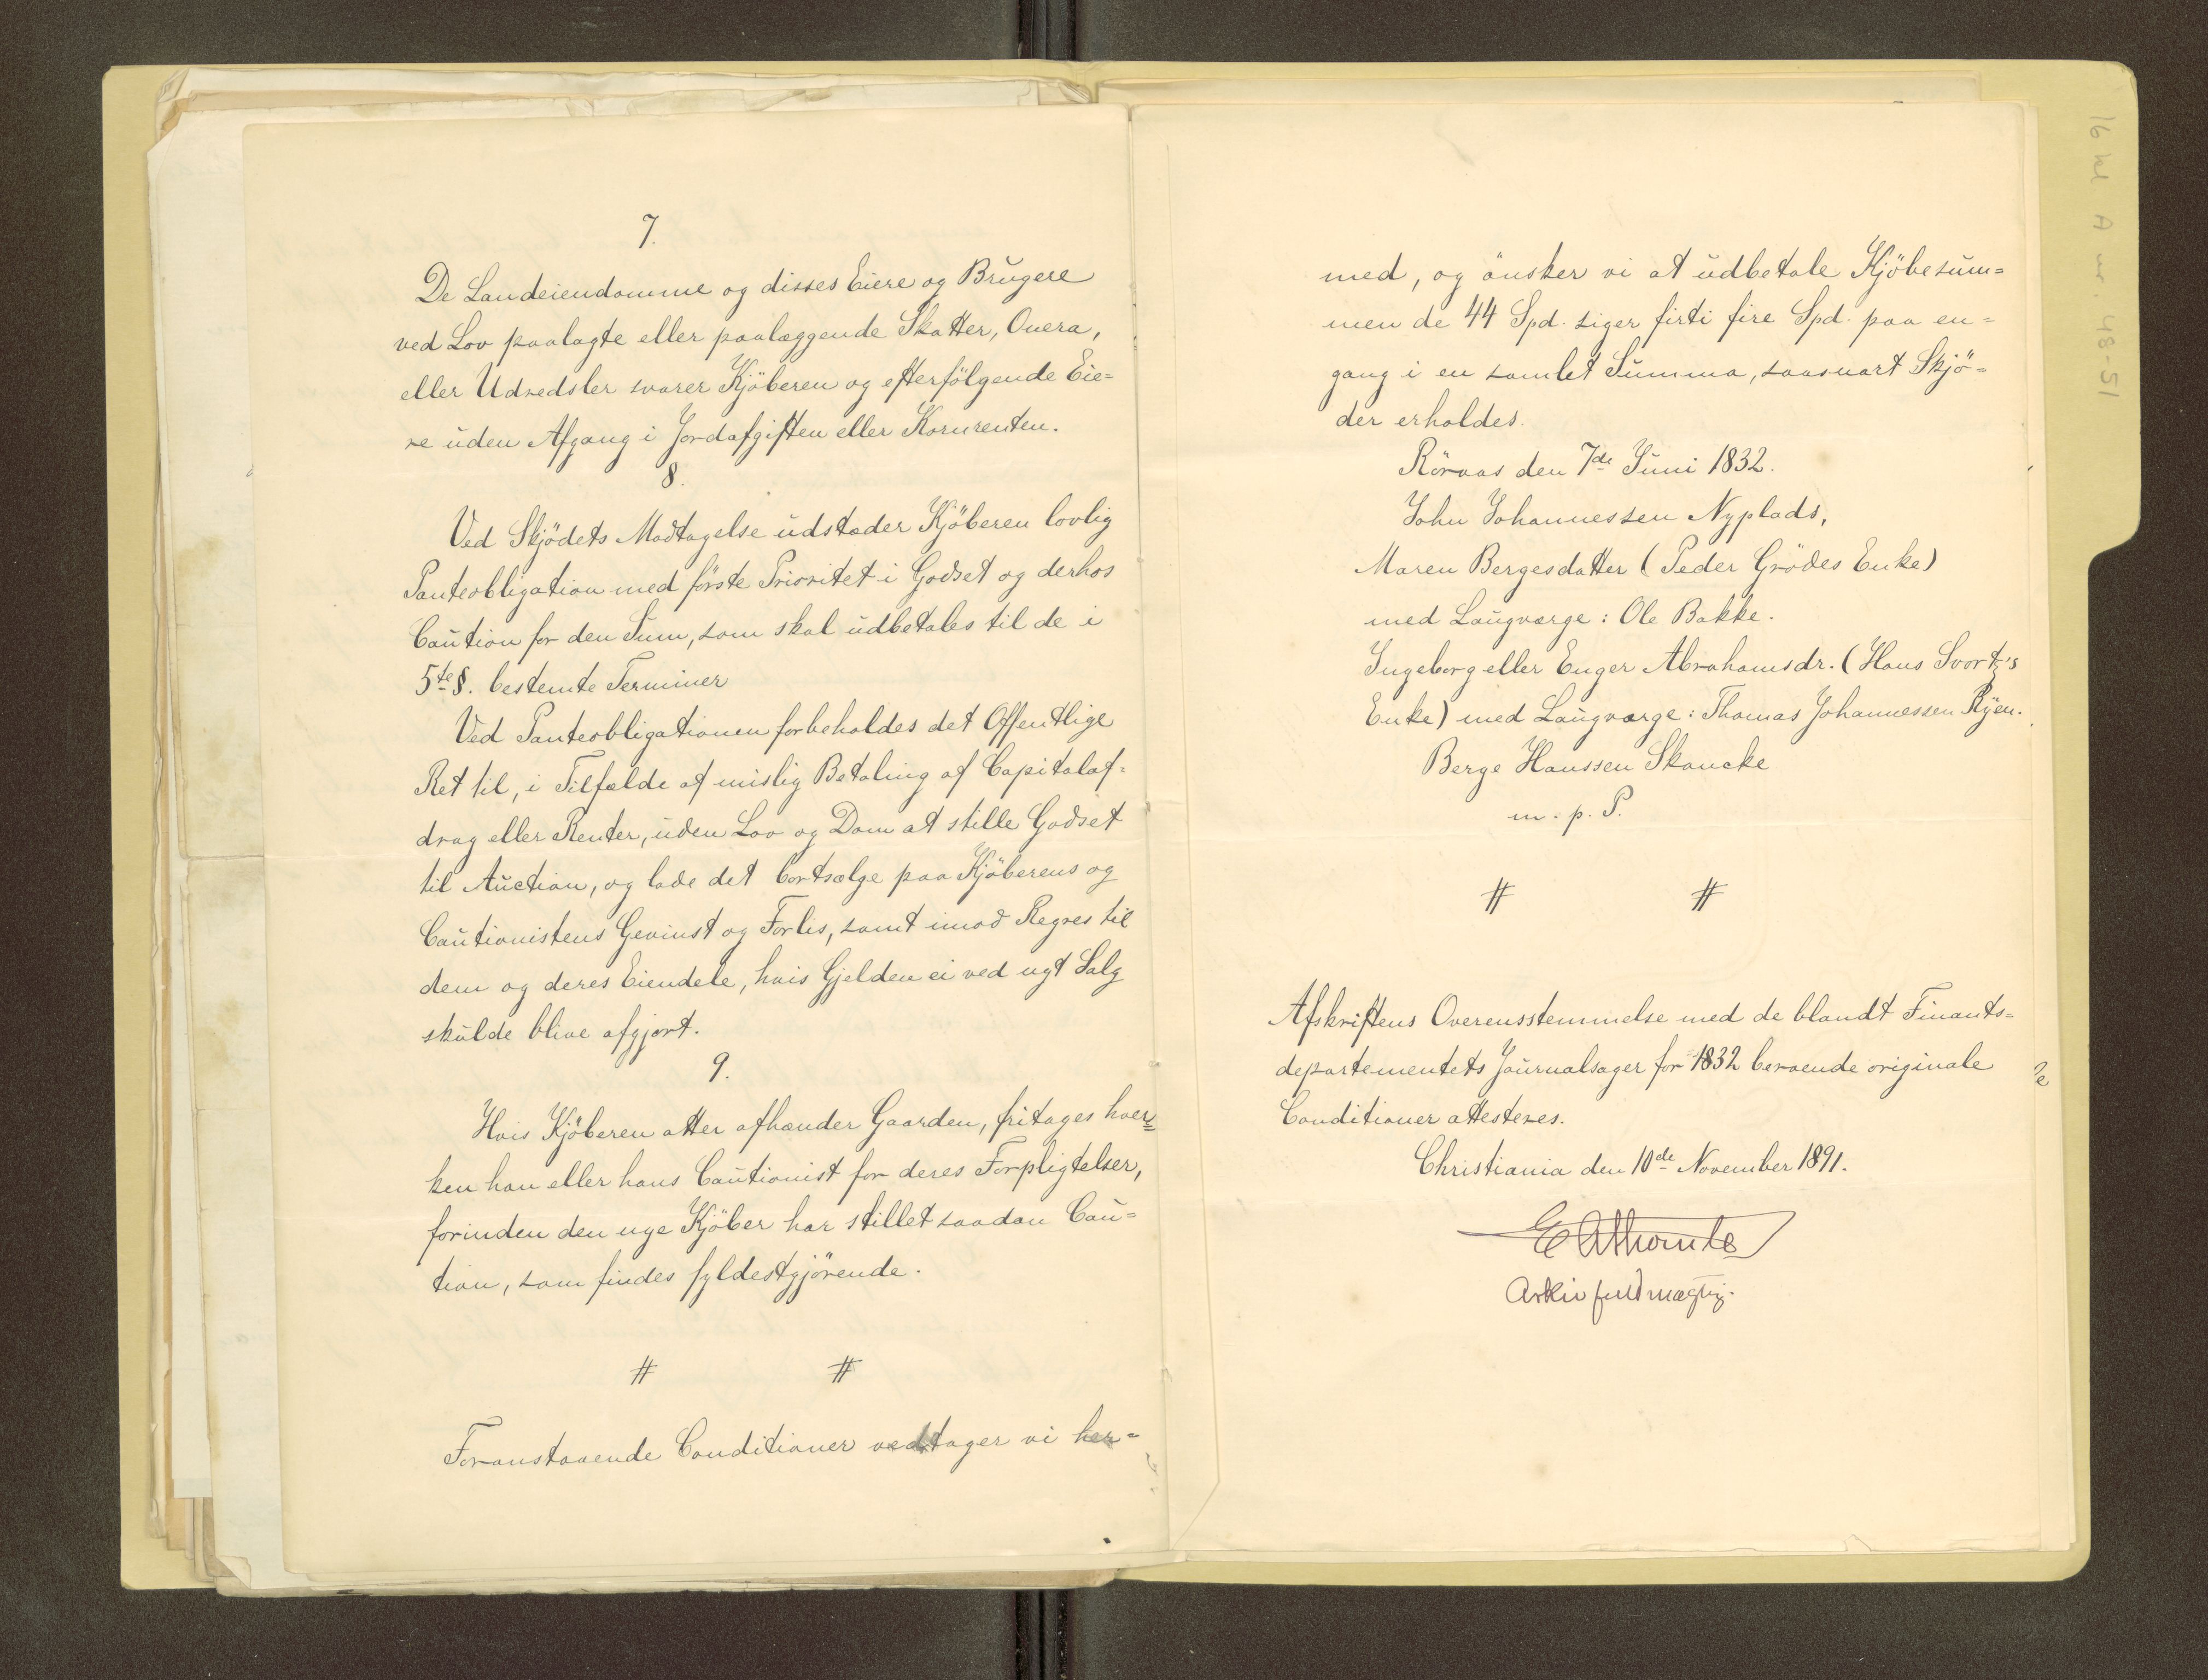 7.
De Landeiendomme og disses Eiere og Brugere
ved Lov paalagte eller paalæggende Skatter, Onera,
eller Udredsler svarer Kjöberen og efterfölgende Eie=
re uden Afgang i Jordafgiften eller Kornrenten.
8.
Ved Skjödets Modtagelse udstæder Kjöberen lovlig
Panteobligation med förste Prioritet i Godset og derhos
Caution for den Sum, som skal udbetales til de i
5te §. bestemte Terminer
Ved Panteobligationen forbeholdes det Offentlige
Ret til, i Tilfælde af mislig Betaling af Capitalaf=
drag eller Renter, uden Lov og Dom at stille Godset
til Auction, og lade det bortsælge paa Kjöberens og
Cautionistens Gevinst og Forlis, samt imod Regres til
dem og deres Eiendele, hvis Gjelden ei ved nyt Salg
skulde blive afgjort.
9.
Hvis Kjöberen atter afhænder Gaarden, fritages hver=
ken han eller hans Cautionist for deres Forpligtelser,
forinden den nye Kjöber har stillet saadan Cau=
tion, som findes fyldestgjörende.
# #
Foranstaaende Conditioner vedtager vi her=
med, og önsker vi at udbetale Kjöbesum=
men de 44 Spd. siger firti fire Spd. paa en=
gang i en samlet Summa, saasnart Skjö=
der erholdes.
Röraas den 7de Juni 1832.
John Johannessen Nyplads,
Maren Bergesdatter (Peder Grödes Enke)
med Laugværge: Ole Bakke.
Ingeborg eller Enger Abrahamsdr. (Hans Svort's
Enke) med Laugværge: Thomas Johannessen Ryen.
Berge Hanssen Skancke
m. p. P.
# #
Afskriftens Overensstemmelse med de blandt Finants=
departementets Journalsager for 1832 beroende originale
Conditioner attesteres.
Christiania den 10de November 1891.
E A Thomle
Arkivfuldmægtig.
16 kl A nr. 48-51